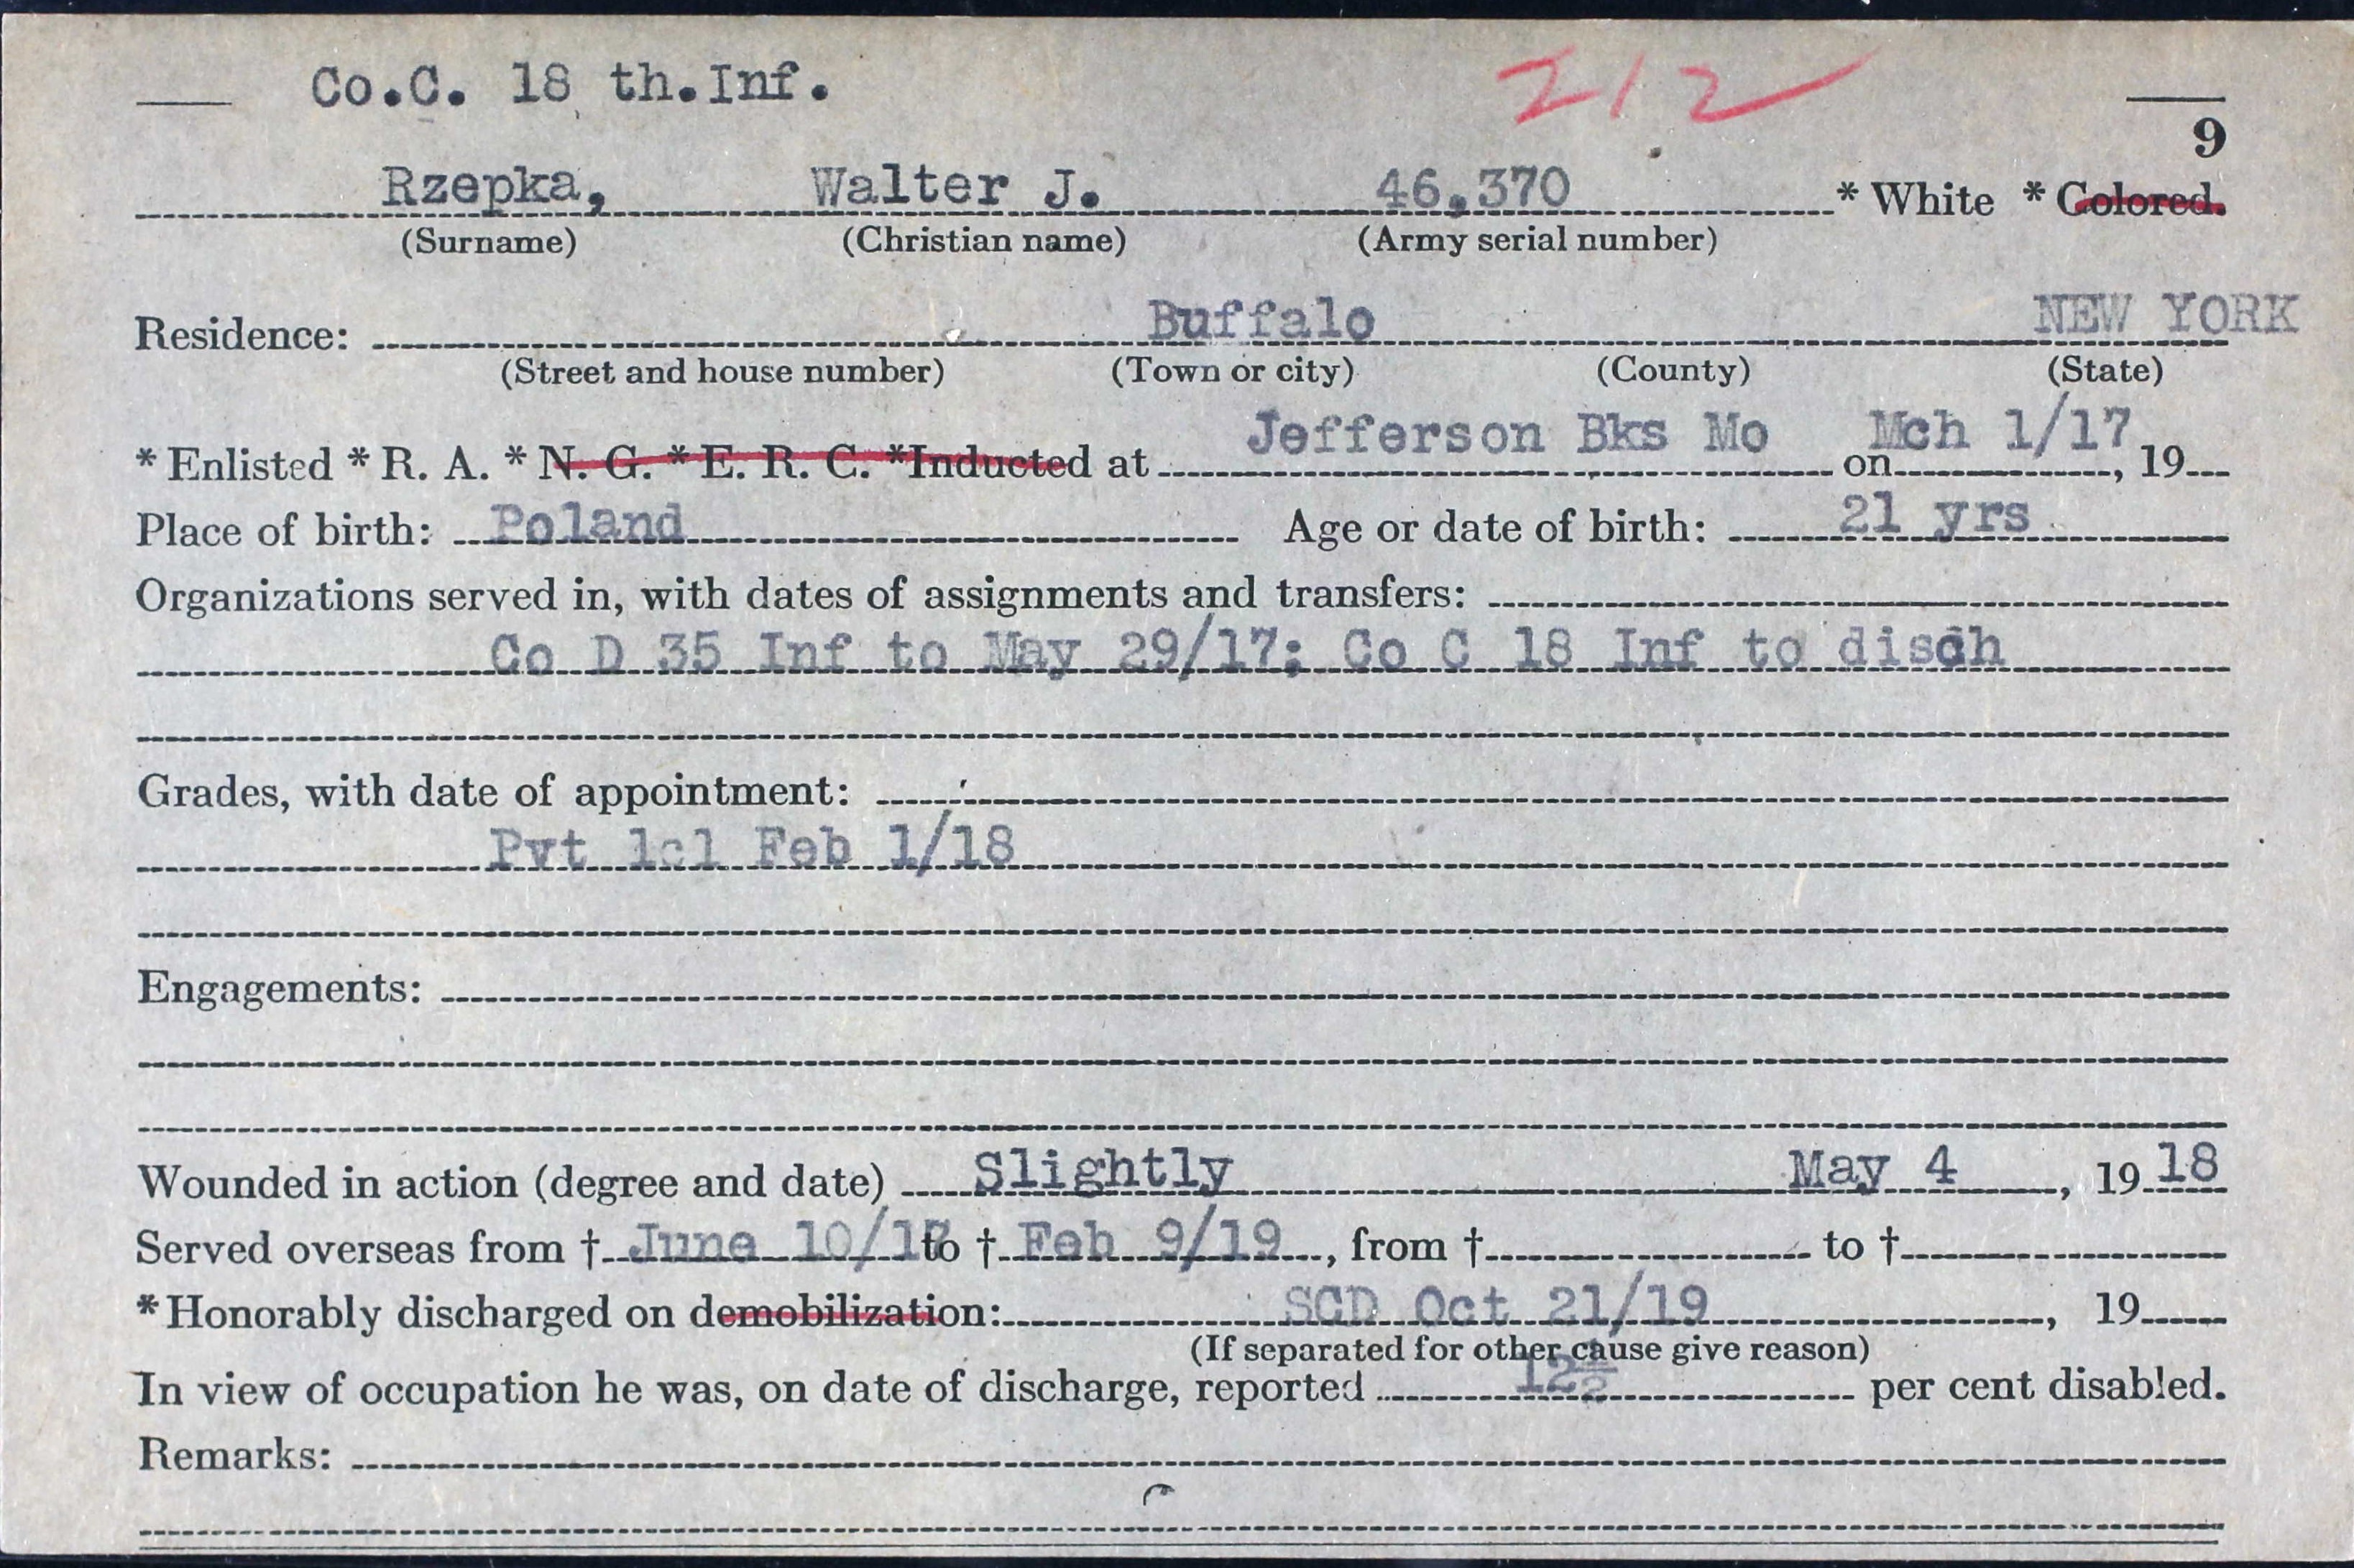 Co.C. 18 th.Inf. 212
9
Rzepka, Walter J. 46,370 * White * Colored.
(Surname) (Christian name) (Army serial number)
Residence: Buffalo NEW YORK
(Street and house number) (Town or city) (County) (State)
* Enlisted * R. A. * N. G. * E. R. C. *Inducted at Jefferson Bks Mo on Mch 1/17, 19
Place of birth: Poland Age or date of birth: 21 yrs
Organizations served in, with dates of assignments and transfers:
Co D 35 Inf to May 29/17; Co C 18 Inf to disch
Grades, with date of appointment:
Pvt 1cl Feb 1/18
Engagements:
Wounded in action (degree and date) Slightly May 4, 1918
Served overseas from † June 10/17 to † Feb 9/19, from † to †
* Honorably discharged on demobilization: SCD Oct 21/19, 19
(If separated for other cause give reason)
In view of occupation he was, on date of discharge, reported 12½ per cent disabled.
Remarks: